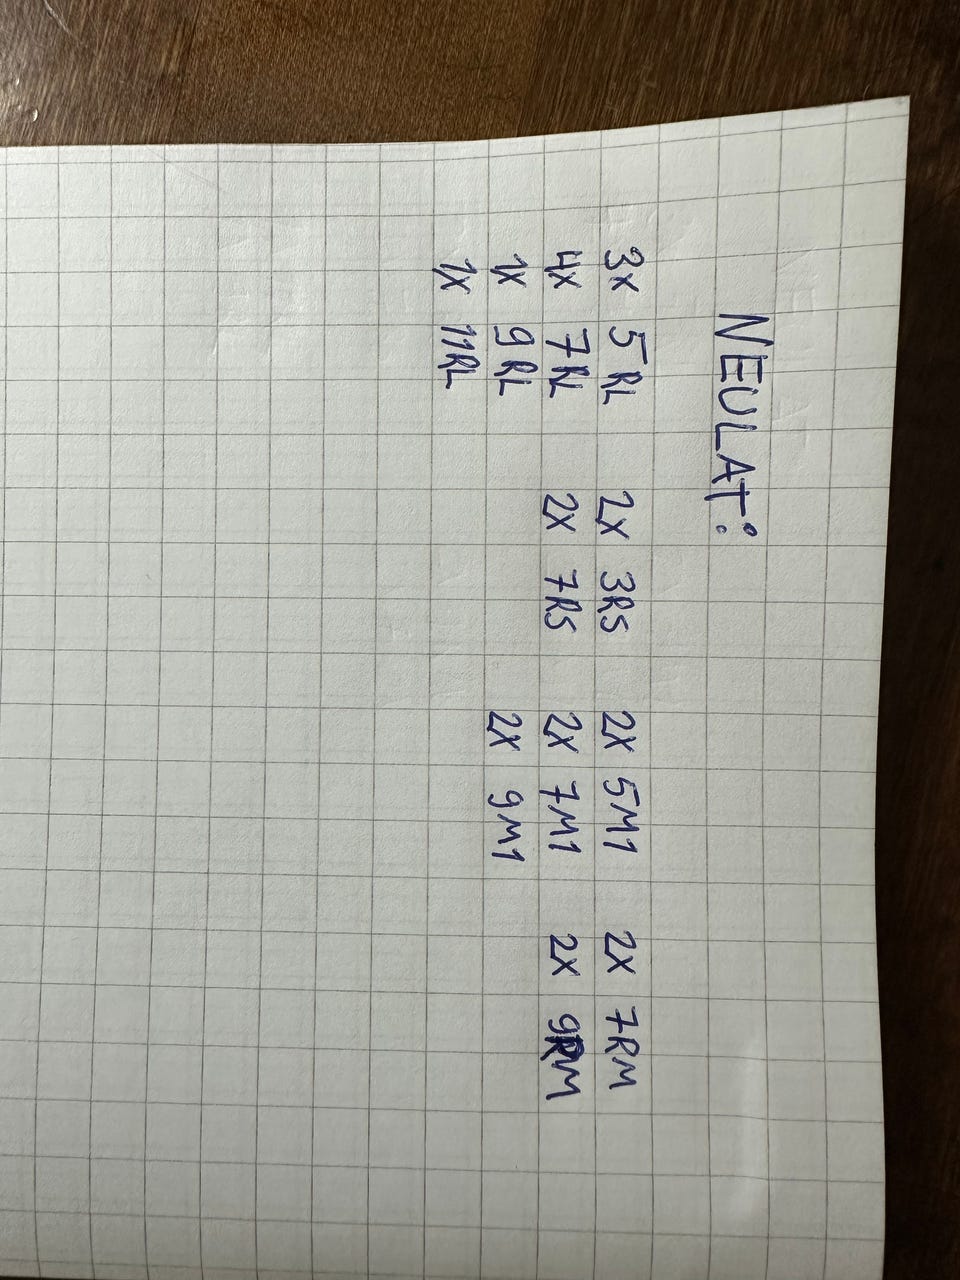 NEULAT:
3x 5RL 2x 3RS 2x 5M1 2x 7RM
4x 7RL 2x 7RS 2x 7M1 2x 9RM
1x 9RL 2x 9M1
1x 11RL